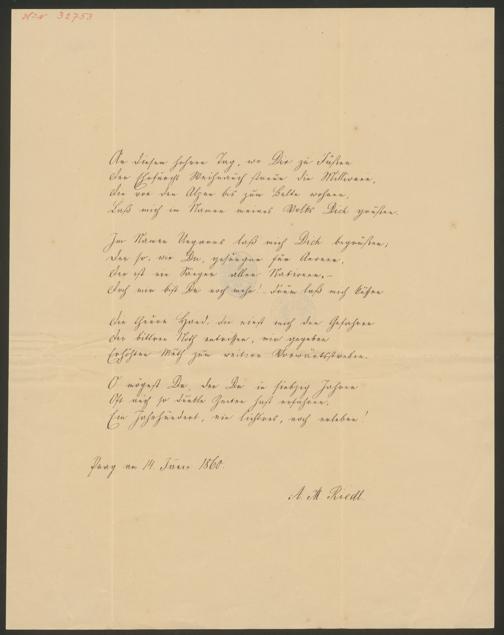 N=r 32753
An diesem hohen Tag, wo Dir zu Füßen
Der Ehrfurcht Weihrauch streuen die Millionen,
Die von den Alpen bis zum Belte wohnen,
Laß mich im Namen meines Volks Dich grüßen.
Im Namen Ungarns laß mich Dich begrüßen,
Der so, wie Du, gesungen für
Der ist ein Segen allen Nationen, –
Doch mir bist Du noch mehr! drum laß mich küßen
Die theure Hand, die einst mich den Gefahren
Der bittren Noth entrissen, mir gegeben
Erhöhten Muth zum weitren Vorwärtsstreben.
O mögest Du, der Du in siebzig Jahren
Oft auch so dunkle Zeiten hast erfahren,
Ein Jahrhundert, ein lichtres, noch erleben!
Prag am 14. 1860.
A. M. Riedl